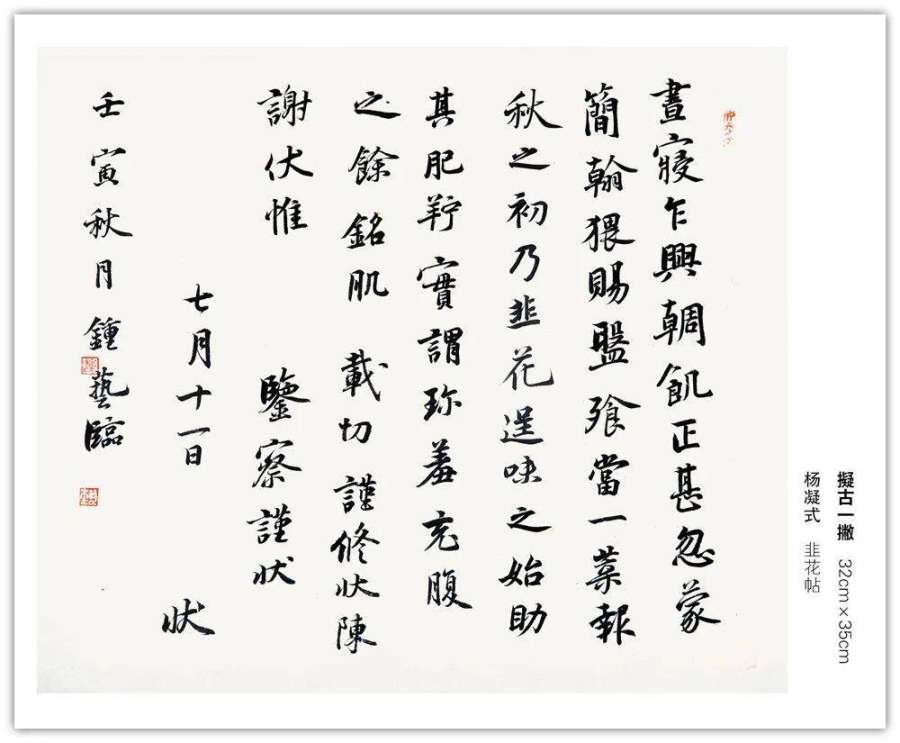 晝寢乍興朝飢正甚忽蒙
簡翰猥賜盤飡當一葉報
秋之初乃韭花逞味之始助
其肥羜實謂珍羞充腹
之餘銘肌載切謹修狀陳
謝伏惟鑒察謹狀
七月十一日狀
壬寅秋月鍾藝臨
擬古一撇 32cm×35cm
杨凝式 韭花帖